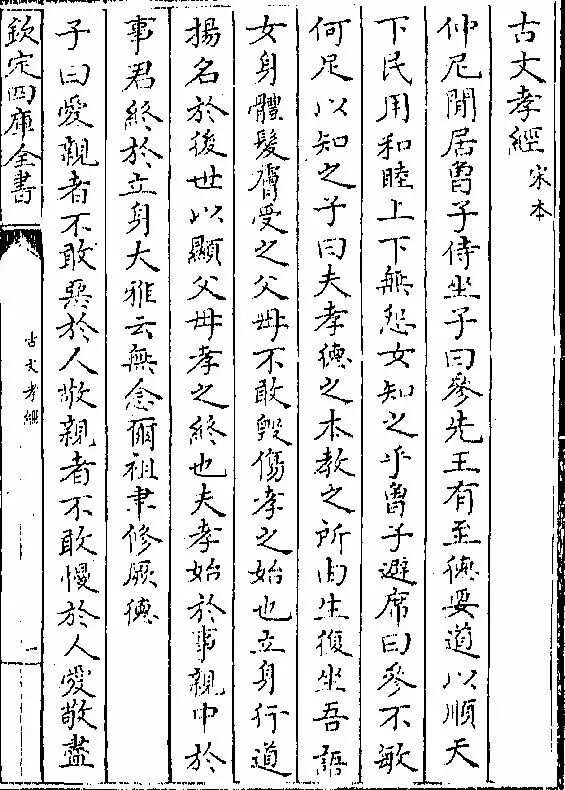 古文孝經 宋本
仲尼閒居曾子侍坐子曰參先王有至德要道以順天
下民用和睦上下無怨女知之乎曾子避席曰參不敏
何足以知之子曰夫孝德之本教之所由生復坐吾語
女身體髮膚受之父母不敢毀傷孝之始也立身行道
揚名於後世以顯父母孝之終也夫孝始於事親中於
事君終於立身大雅云無念爾祖聿修厥德
子曰愛親者不敢惡於人敬親者不敢慢於人愛敬盡
欽定四庫全書
古文孝經
一